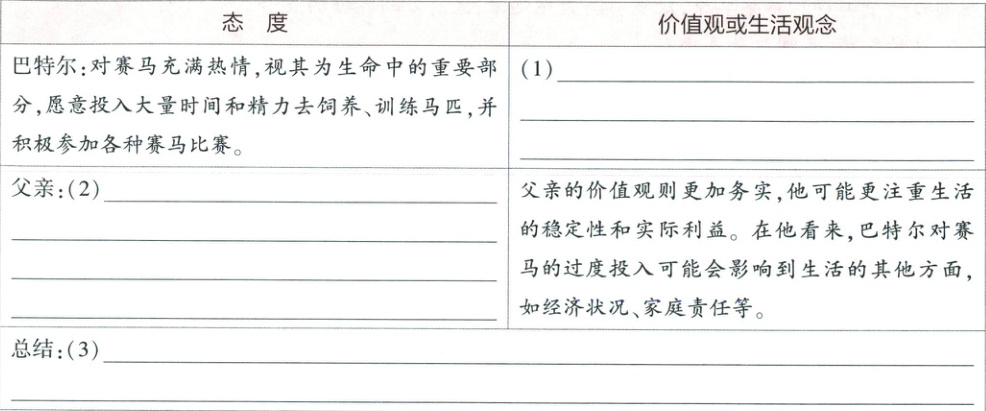 态 度
价值观或生活观念
巴特尔:对赛马充满热情,视其为生命中的重要部
分,愿意投入大量时间和精力去饲养、训练马匹,并
积极参加各种赛马比赛。
(1)
父亲:(2)
父亲的价值观则更加务实,他可能更注重生活
的稳定性和实际利益。在他看来,巴特尔对赛
马的过度投入可能会影响到生活的其他方面,
如经济状况、家庭责任等。
总结:(3)